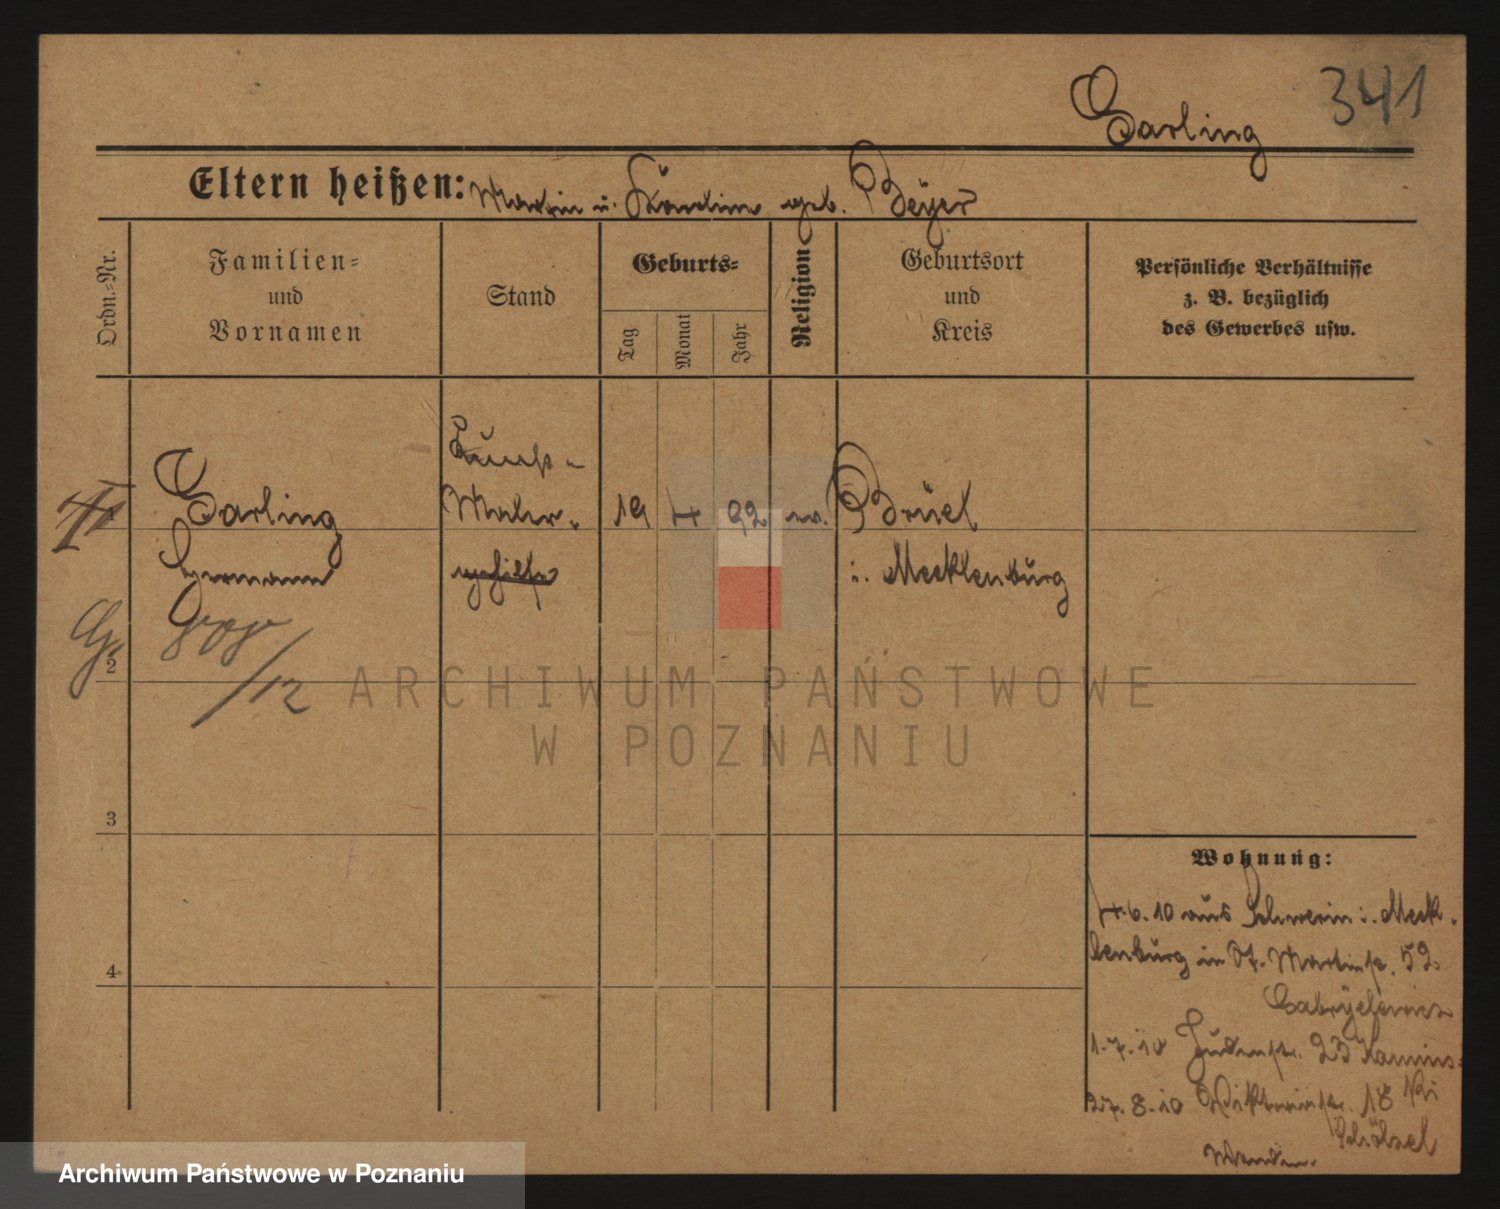 341
Garling
Eltern heißen: Martin u. Karoline geb. Beÿer
Ordn.-Nr.
Familien-
und
Vornamen
Stand
Geburts-
Tag
Monat
Jahr
Religion
Geburtsort
und
Kreis
Persönliche Verhältnisse
z. B. bezüglich
des Gewerbes usw.
1
Garling
Hermann
Kunst-
Maler
gehilfe
19 4 92 ev.
Brüel
i. Mecklenburg
2
/12
ARCHIWUM PAŃSTWOWE
W POZNANIU
3
4
Wohnung:
4.6.10 aus Schwerin i. Meck-
lenburg in St. Martinstr. 52
1.7.10 Judenstr. 23 Kamins-
ki
27.8.10 Viktoriastr. 18
Archiwum Państwowe w Poznaniu